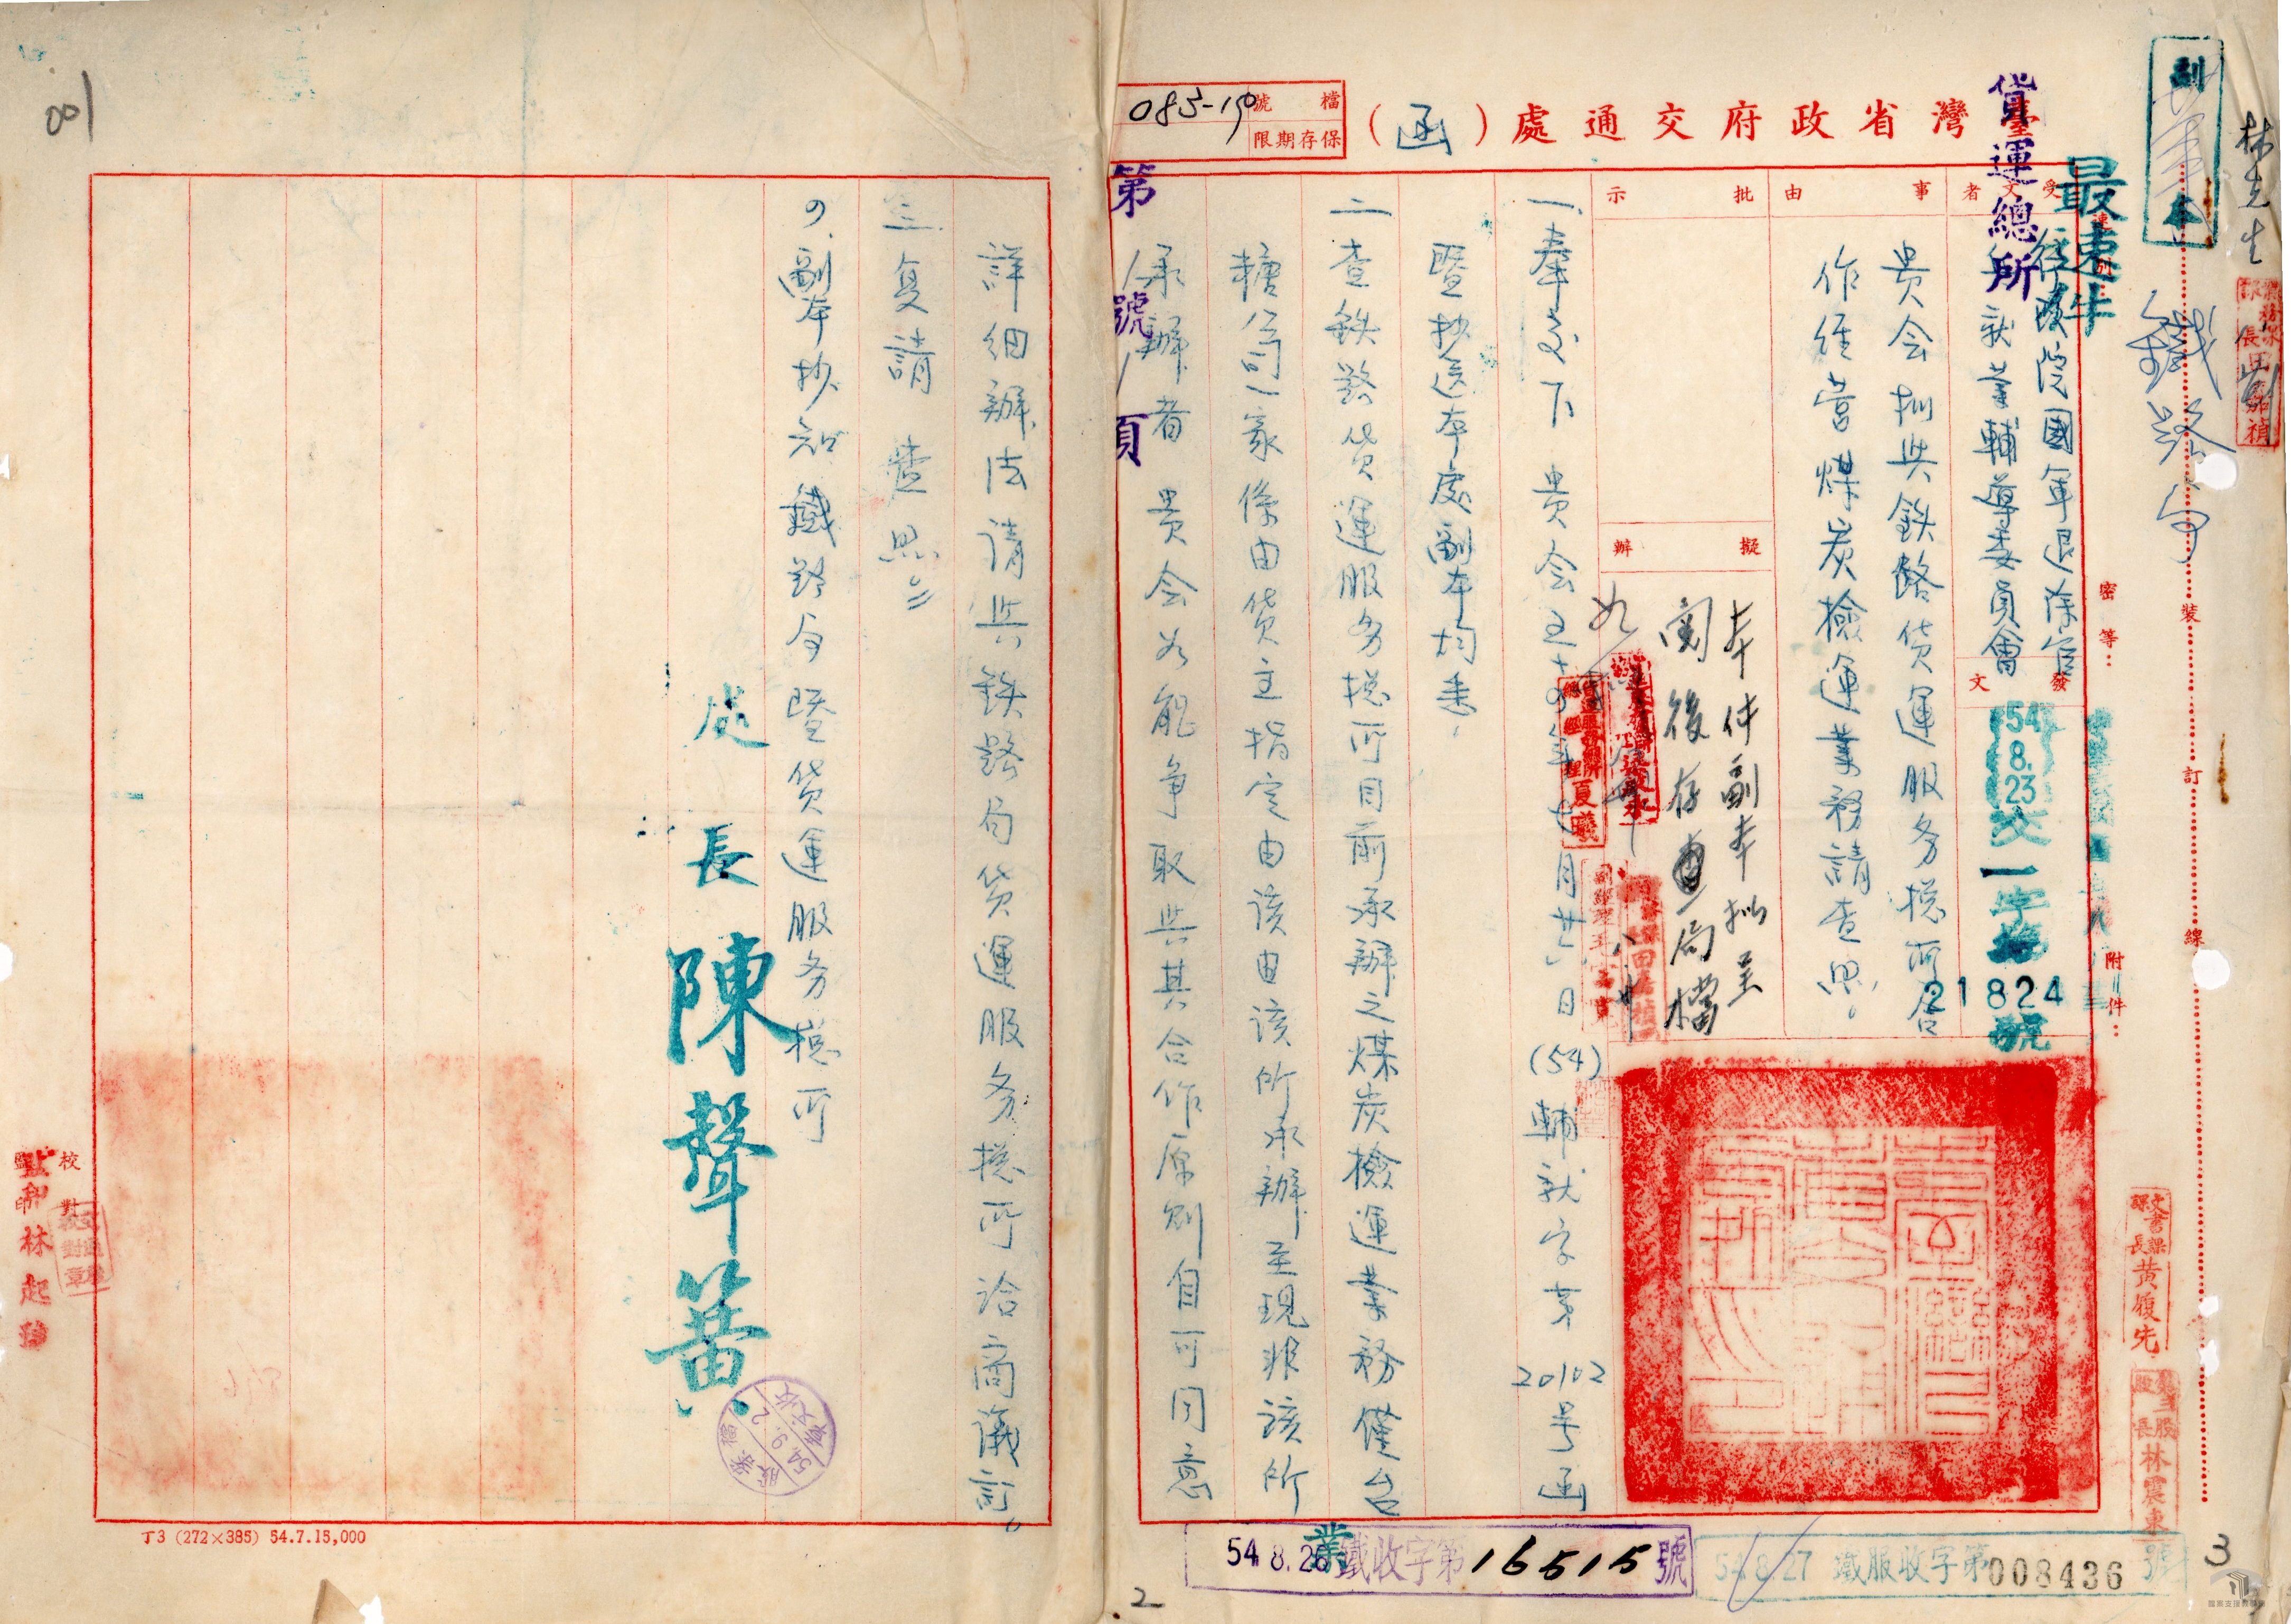 林先生
副本
鐵路局
最速件
貨運總所
臺灣省政府交通處（函）
檔號
083-19
保存期限
受文者
行政院國軍退除役官兵就業輔導委員會
事由
貴会拟與鉄路貨運服务總所合作経营煤炭檢運業務請查照。
批示
擬辦
本件副本拟呈
閱後存查局檔
密等：
附件：
發文
54.8.23交一字第
21824
號
裝
訂
線
一、奉交下 貴会五十四年七月廿六日(54)輔就字第20102号函
暨抄送本處副本均悉。
二、查鉄路貨運服务總所目前承辦之煤炭檢運業務僅台
糖公司一家係由貨主指定由該由該所承辦至現非該所
承辦者 貴会如能争取與其合作原則自可同意
第1號1頁
詳細辦法請與鉄路局貨運服务總所洽商議訂。
三、复請 查照
四、副本抄知鐵路局暨貨運服务總所
處長 陳聲簧
校對
監印 林起
文書課課長 黃履先
股長 林震東
54.8.26 業鐵收字第16515號
54.8.27 鐵服收字第008436號
54.9.2
001
丁3 (272×385) 54.7.15,000
2
3